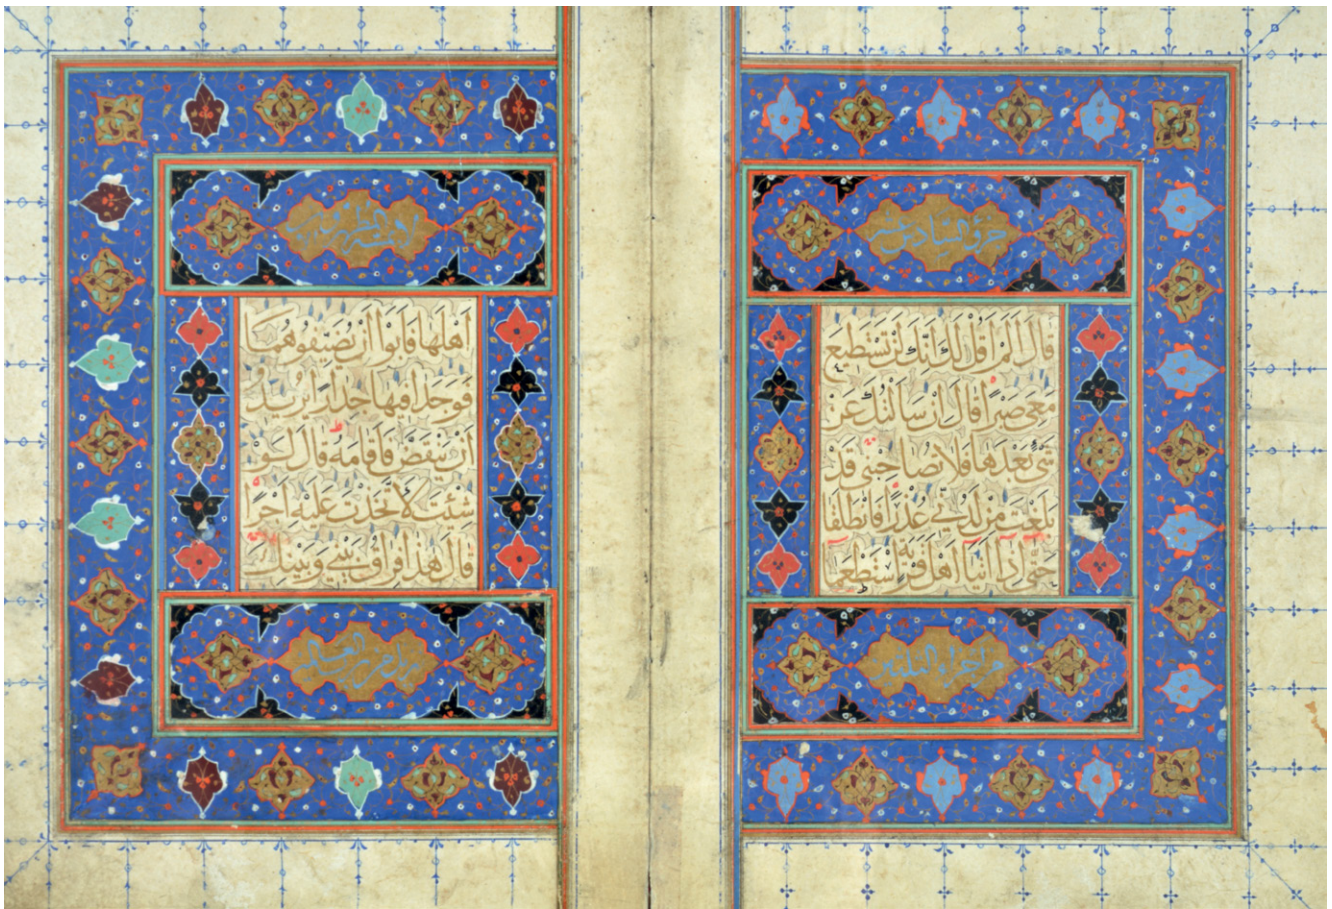 جزو السادس عشر
قَالَ اَلَمْ اَقُلْ لَكَ اِنَّكَ لَنْ تَسْتَطِيعَ
مَعِىَ صَبْرًا قَالَ اِنْ سَاَلْتُكَ عَنْ
شَىْءٍ بَعْدَهَا فَلَا تُصَاحِبْنِى قَدْ
بَلَغْتَ مِنْ لَدُنِّى عُذْرًا فَانْطَلَقَا
حَتَّى اِذَا اَتَيَا اَهْلَ قَرْيَةٍ اسْتَطْعَمَا
من اجزاء الثلثين
لا يمسه الا المطهرون
اَهْلَهَا فَاَبَوْا اَنْ يُضَيِّفُوهُمَا
فَوَجَدَا فِيهَا جِدَارًا يُرِيدُ
اَنْ يَنْقَضَّ فَاَقَامَهُ قَالَ لَوْ
شِئْتَ لَاتَّخَذْتَ عَلَيْهِ اَجْرًا
قَالَ هَذَا فِرَاقُ بَيْنِى وَبَيْنِكَ
تنزيل من رب العالمين